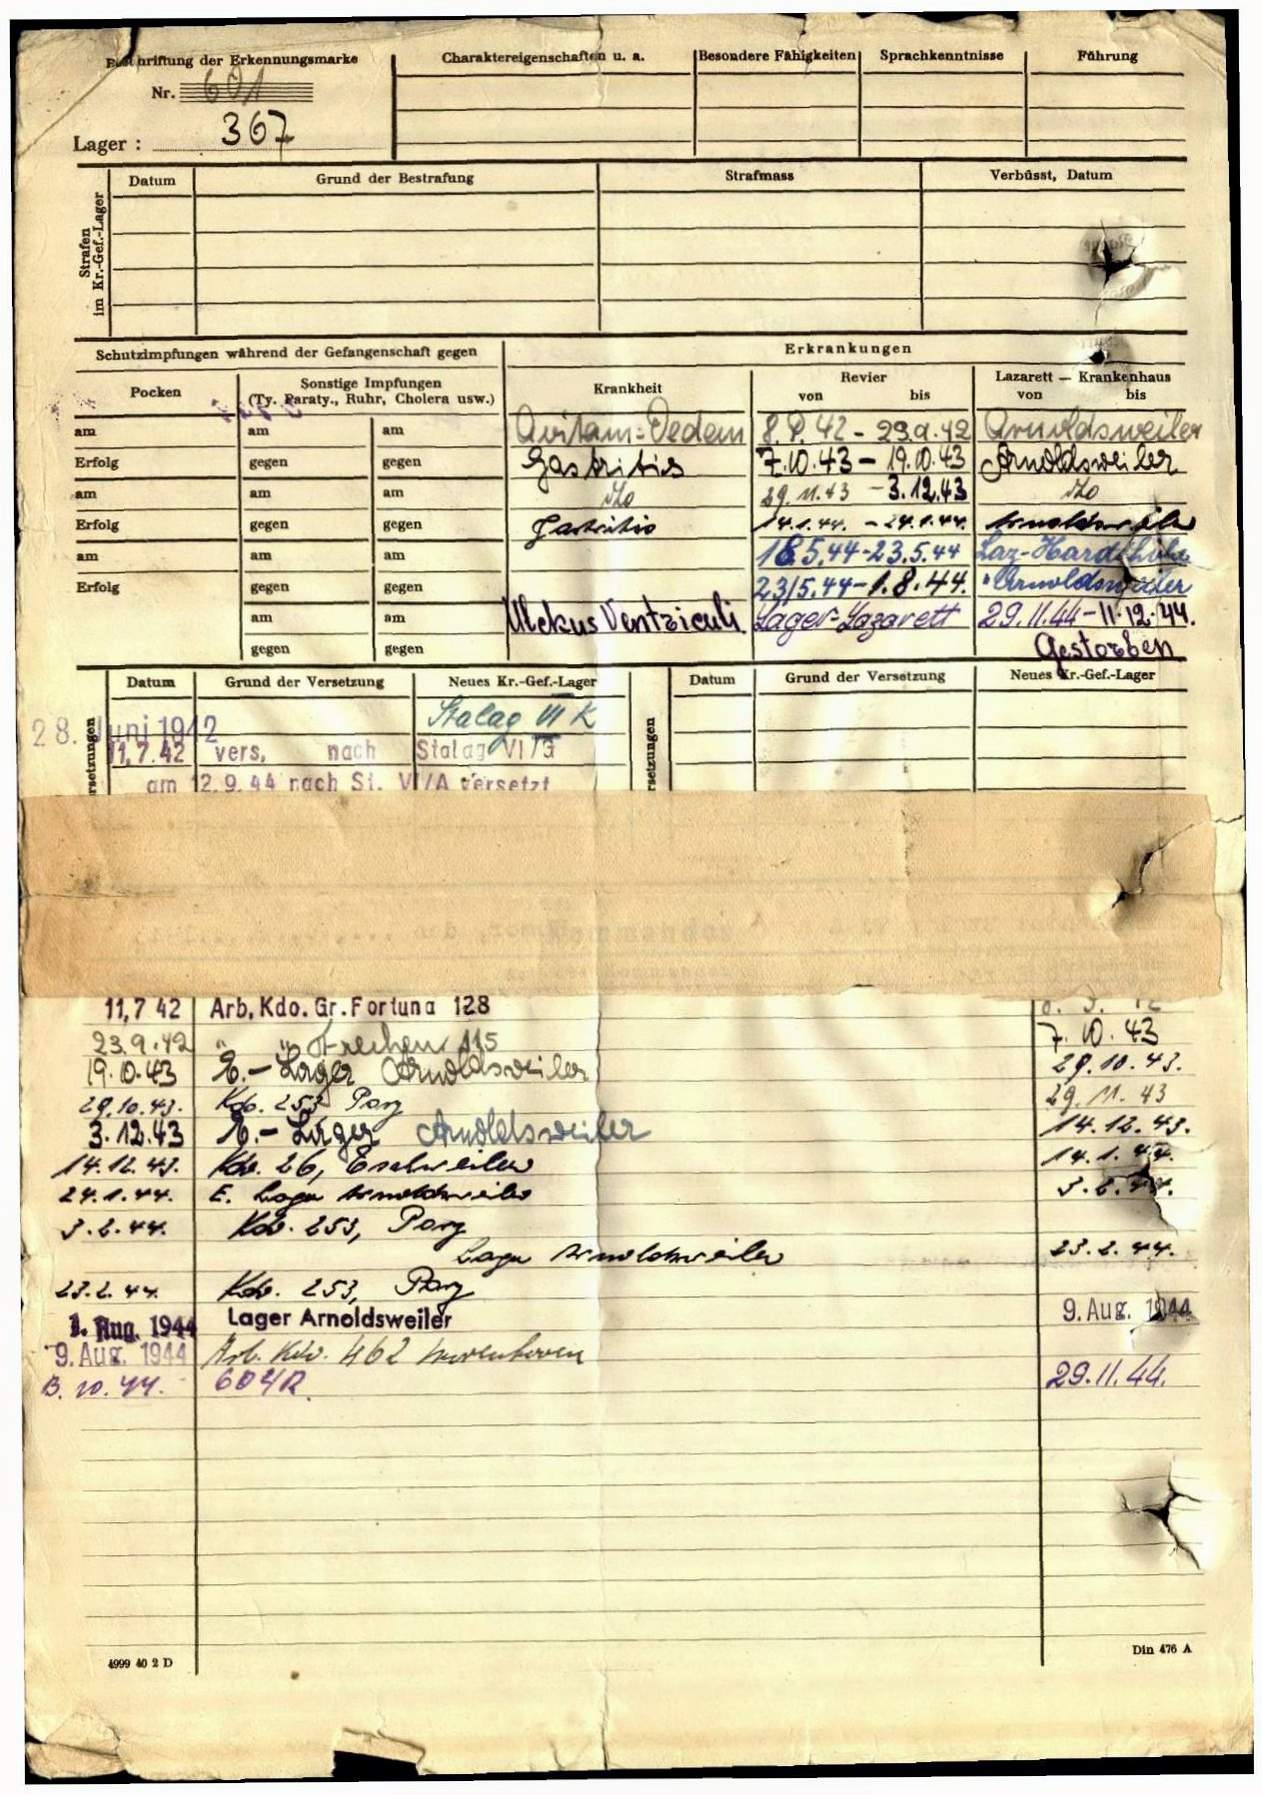 Beschriftung der Erkennungsmarke
Nr. 601
Lager : 367
Charaktereigenschaften u. a.
Besondere Fähigkeiten
Sprachkenntnisse
Führung
Strafen
im Kr.-Gef.-Lager
Datum Grund der Bestrafung Strafmass Verbüsst, Datum
Schutzimpfungen während der Gefangenschaft gegen
Erkrankungen
Pocken
Sonstige Impfungen
(Ty. Paraty., Ruhr, Cholera usw.)
Krankheit
Revier
von bis
Lazarett — Krankenhaus
von bis
am am am Avitam=Oedem 8.9.42 - 23.9.42 Arnoldsweiler
Erfolg gegen gegen Gastritis 7.10.43 - 19.10.43 Arnoldsweiler
am am am 29.11.43 - 3.12.43
Erfolg gegen gegen Gastritis 14.1.44. - 24.1.44. Arnoldsweiler
am am am 18.5.44-23.5.44 Laz-
Erfolg gegen gegen 23/5.44-1.8.44. Arnoldsweiler
am am Ulckus Ventriculi Lager-Lazarett 29.11.44-11.12.44.
gegen gegen Gestorben
Datum Grund der Versetzung Neues Kr.-Gef.-Lager
Datum Grund der Versetzung Neues Kr.-Gef.-Lager
28. Juni 1942 Stalag VI K
11.7.42 vers, nach Stalag VI/G
am 12.9.44 nach St. VI/A versetzt
11,7 42 Arb, Kdo. Gr. Fortuna 128
23.9.42 " " Frechen 115 7.10.43
19.10.43 E.- Lager Arnoldsweiler 29.10.43.
29.10.43. Kdo. 253 Porz 29.11.43
3.12.43 E.- Lager Arnoldsweiler 14.12.43.
14.12.43. Kdo. 26, Eschweiler 14.1.44.
24.1.44. E. Lager Arnoldsweiler 3.2.44.
3.2.44. Kdo. 253, Porz
Lager Arnoldsweiler 23.2.44.
23.2.44. Kdo. 253, Porz
1. Aug. 1944 Lager Arnoldsweiler 9. Aug. 1944
9. Aug. 1944 Arb. Kdo. 462
13.10.44. 604R. 29.11.44.
4999 40 2 D
Din 476 A